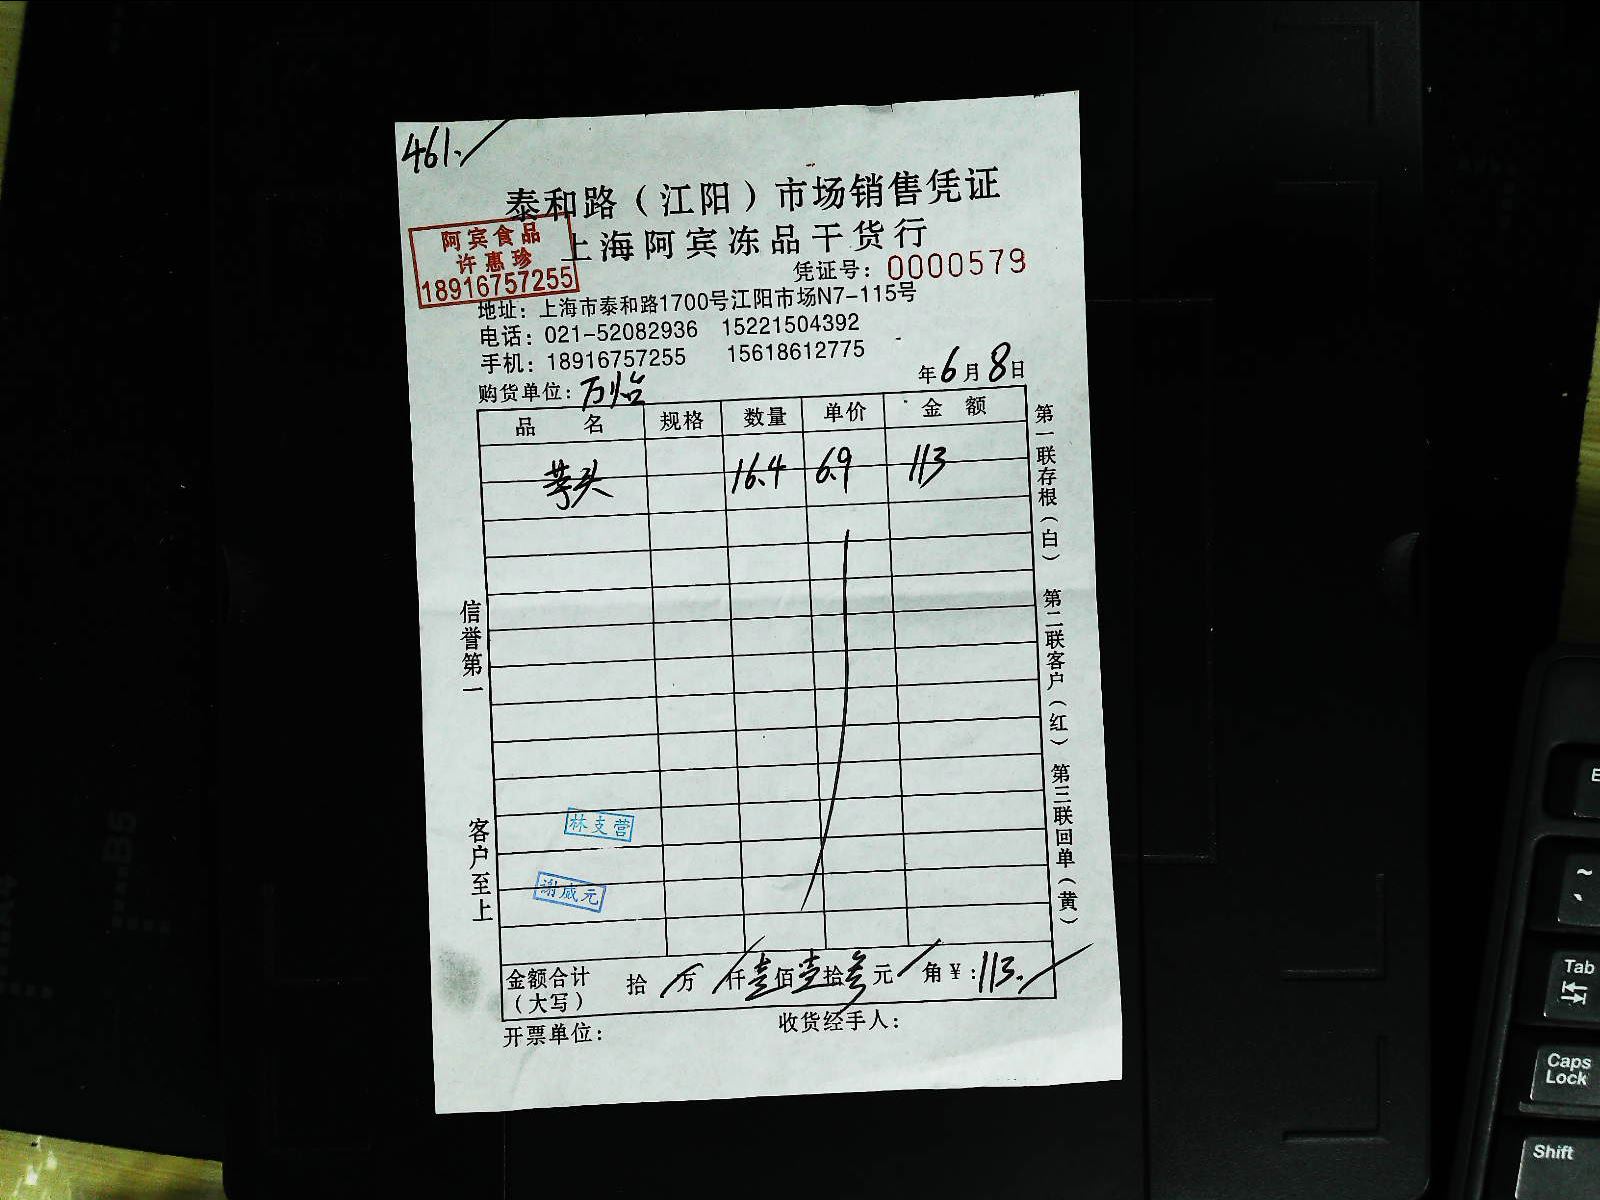 461.
泰和路（江阳）市场销售凭证
上海阿宾冻品干货行
阿宾食品
许惠珍
18916757255
凭证号：0000579
地址：上海市泰和路1700号江阳市场N7-115号
电话：021-52082936 15221504392
手机：18916757255 15618612775
购货单位：万怡 年6月8日
品名 规格 数量 单价 金额
芋头 16.4 6.9 113
第一联存根（白） 第二联客户（红） 第三联回单（黄）
信誉第一
客户至上
林支营
谢威元
金额合计（大写） 拾 万 仟壹佰壹拾叁元 角¥:113.
开票单位： 收货经手人：
B5
A4
Tab
Caps Lock
Shift